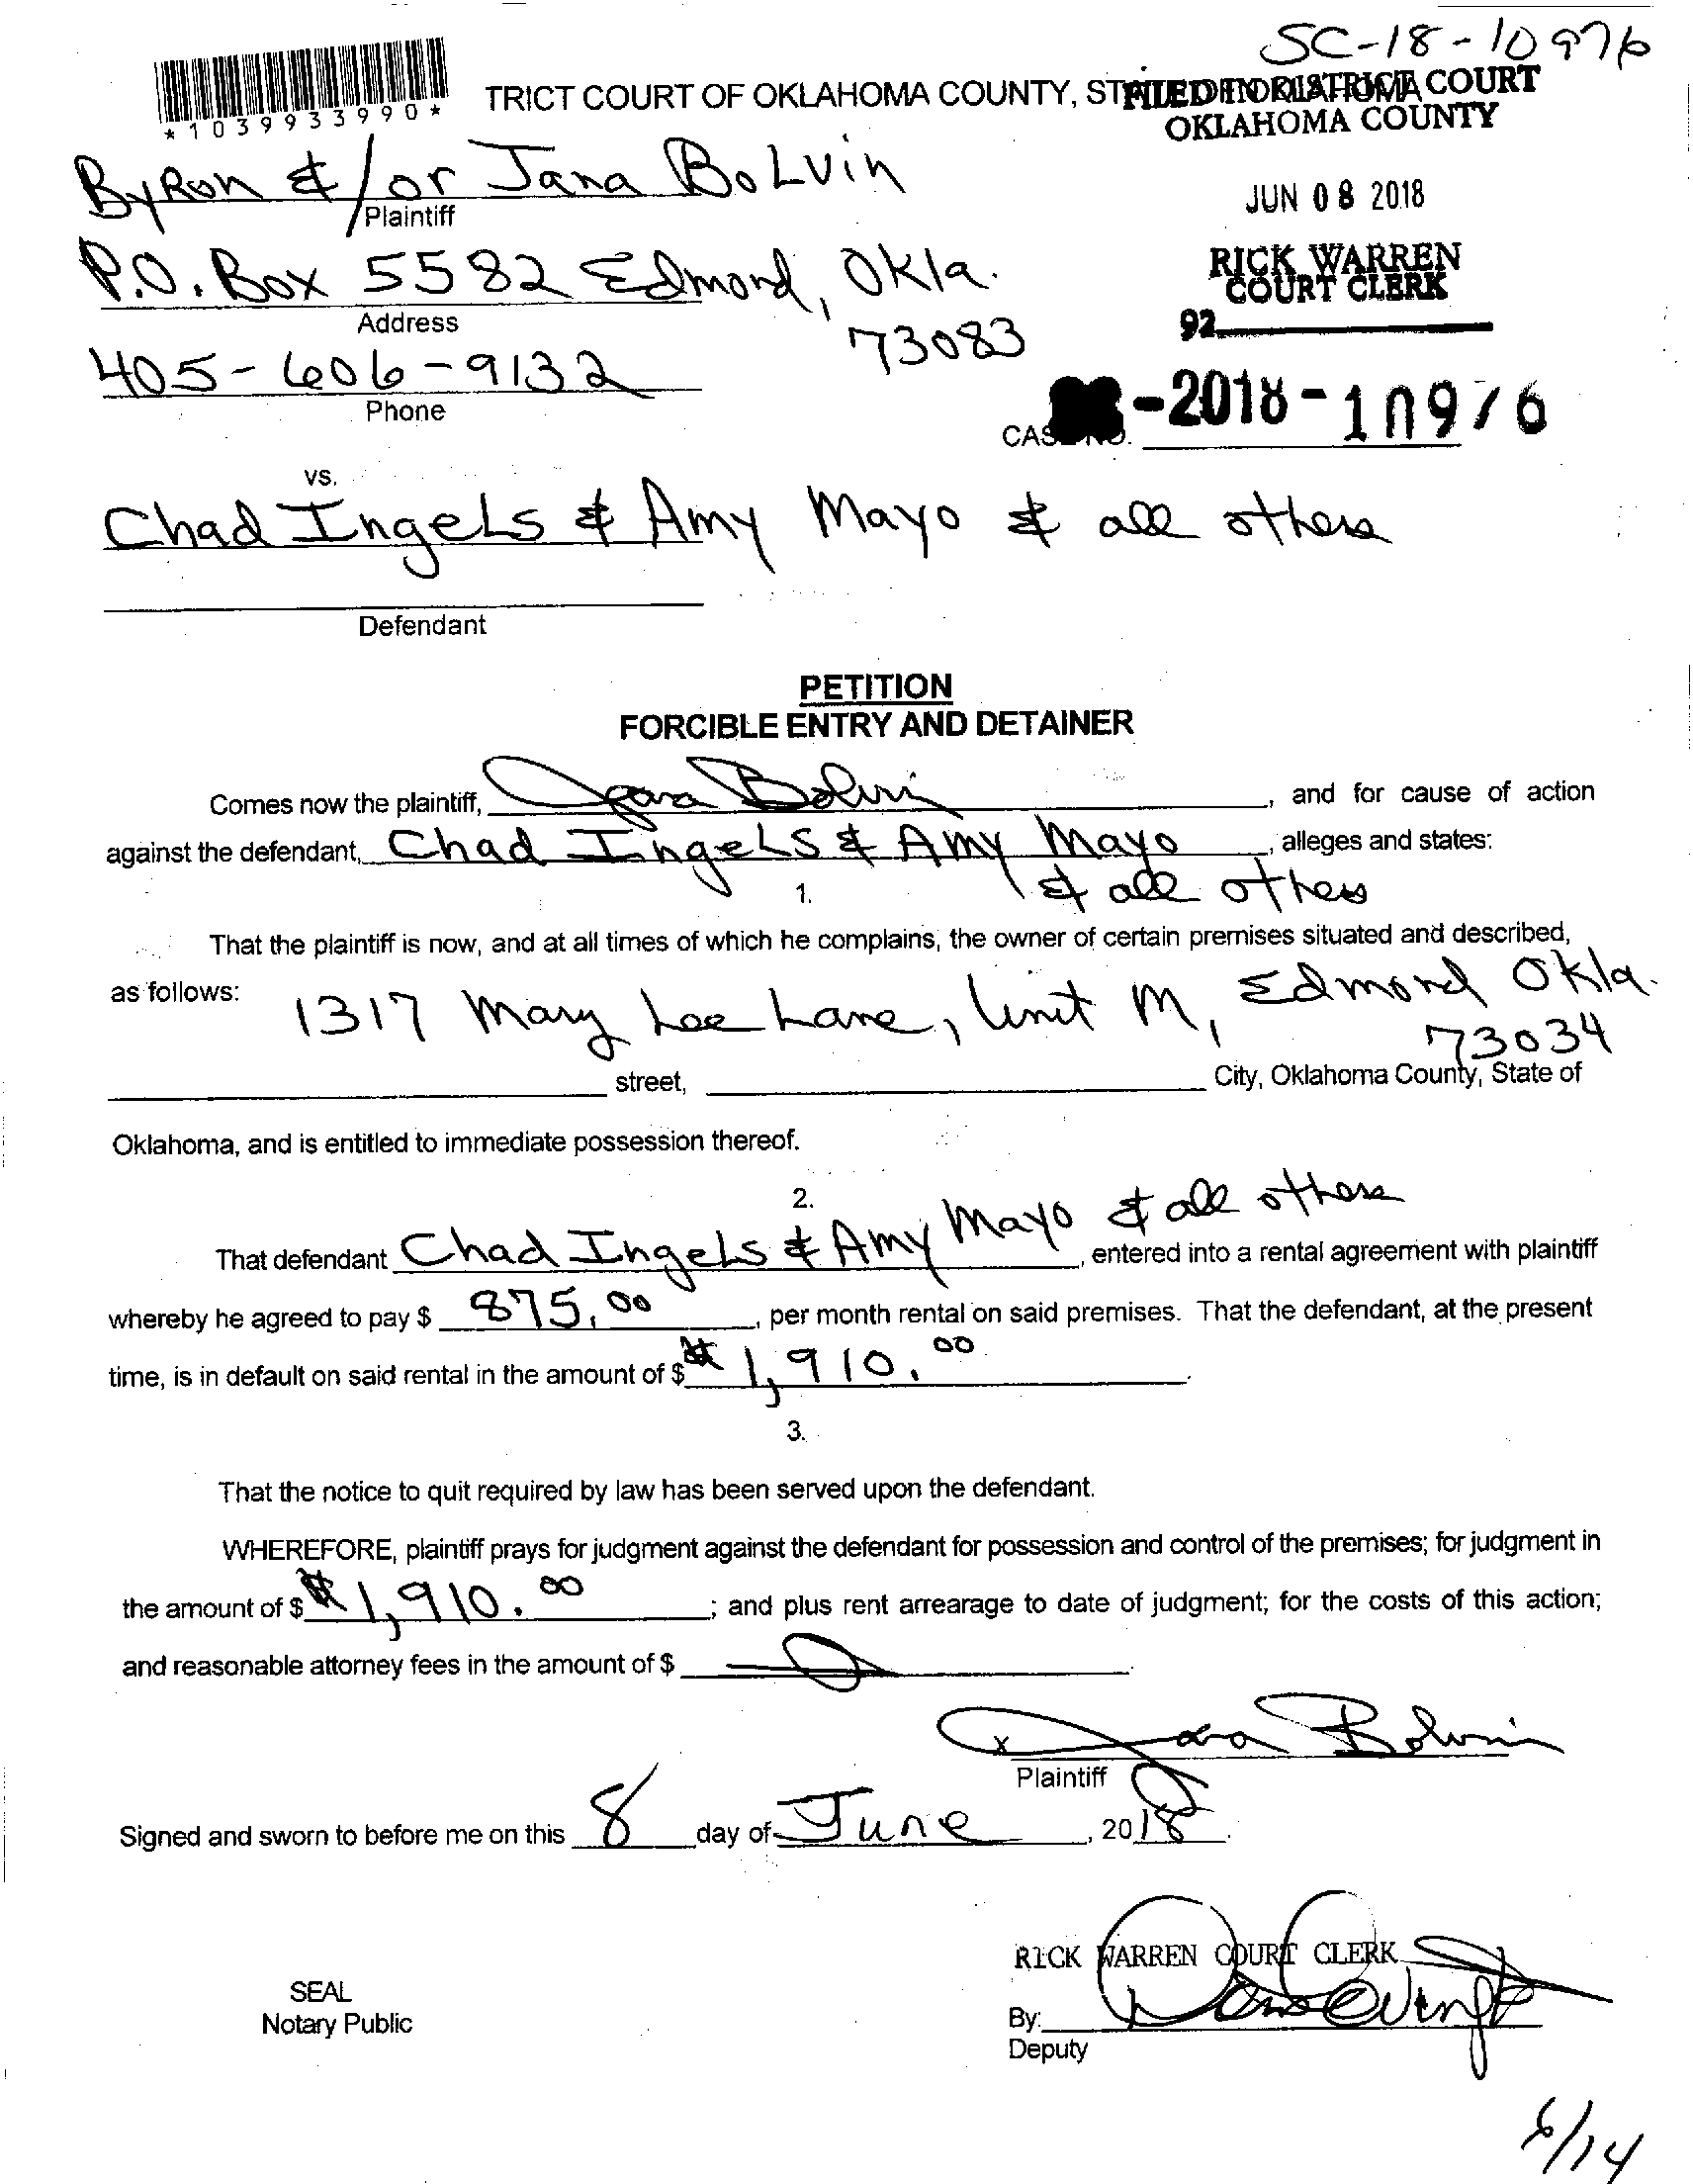 SC-18-10976
TRICT COURT OF OKLAHOMA COUNTY, STATE OF OKLAHOMA
FILED IN DISTRICT COURT
OKLAHOMA COUNTY
*1039933990*
Byron &/or Jana BoLvin
Plaintiff
JUN 08 2018
P.O. Box 5582 Edmond, Okla.
73083
Address
RICK WARREN
COURT CLERK
92
405-606-9132
Phone
CASE NO. -2018-10976
vs.
Chad IngeLs & Amy Mayo & all others
Defendant
PETITION
FORCIBLE ENTRY AND DETAINER
Comes now the plaintiff, Jana Bolvin, and for cause of action
against the defendant, Chad IngeLs & Amy Mayo, alleges and states:
& all others
1.
That the plaintiff is now, and at all times of which he complains, the owner of certain premises situated and described,
as follows: 1317 Mary Lee Lane, Unit M, Edmond Okla.
73034
street, City, Oklahoma County, State of
Oklahoma, and is entitled to immediate possession thereof.
2.
That defendant Chad IngeLs & Amy Mayo & all others, entered into a rental agreement with plaintiff
whereby he agreed to pay $ 875.00, per month rental on said premises. That the defendant, at the present
time, is in default on said rental in the amount of $ $1,910.00.
3.
That the notice to quit required by law has been served upon the defendant.
WHEREFORE, plaintiff prays for judgment against the defendant for possession and control of the premises; for judgment in
the amount of $ $1,910.00; and plus rent arrearage to date of judgment; for the costs of this action;
and reasonable attorney fees in the amount of $
x Jana Bolvin
Plaintiff
Signed and sworn to before me on this 8 day of June, 2018.
RICK WARREN COURT CLERK
SEAL
Notary Public
By:
Deputy
6/14